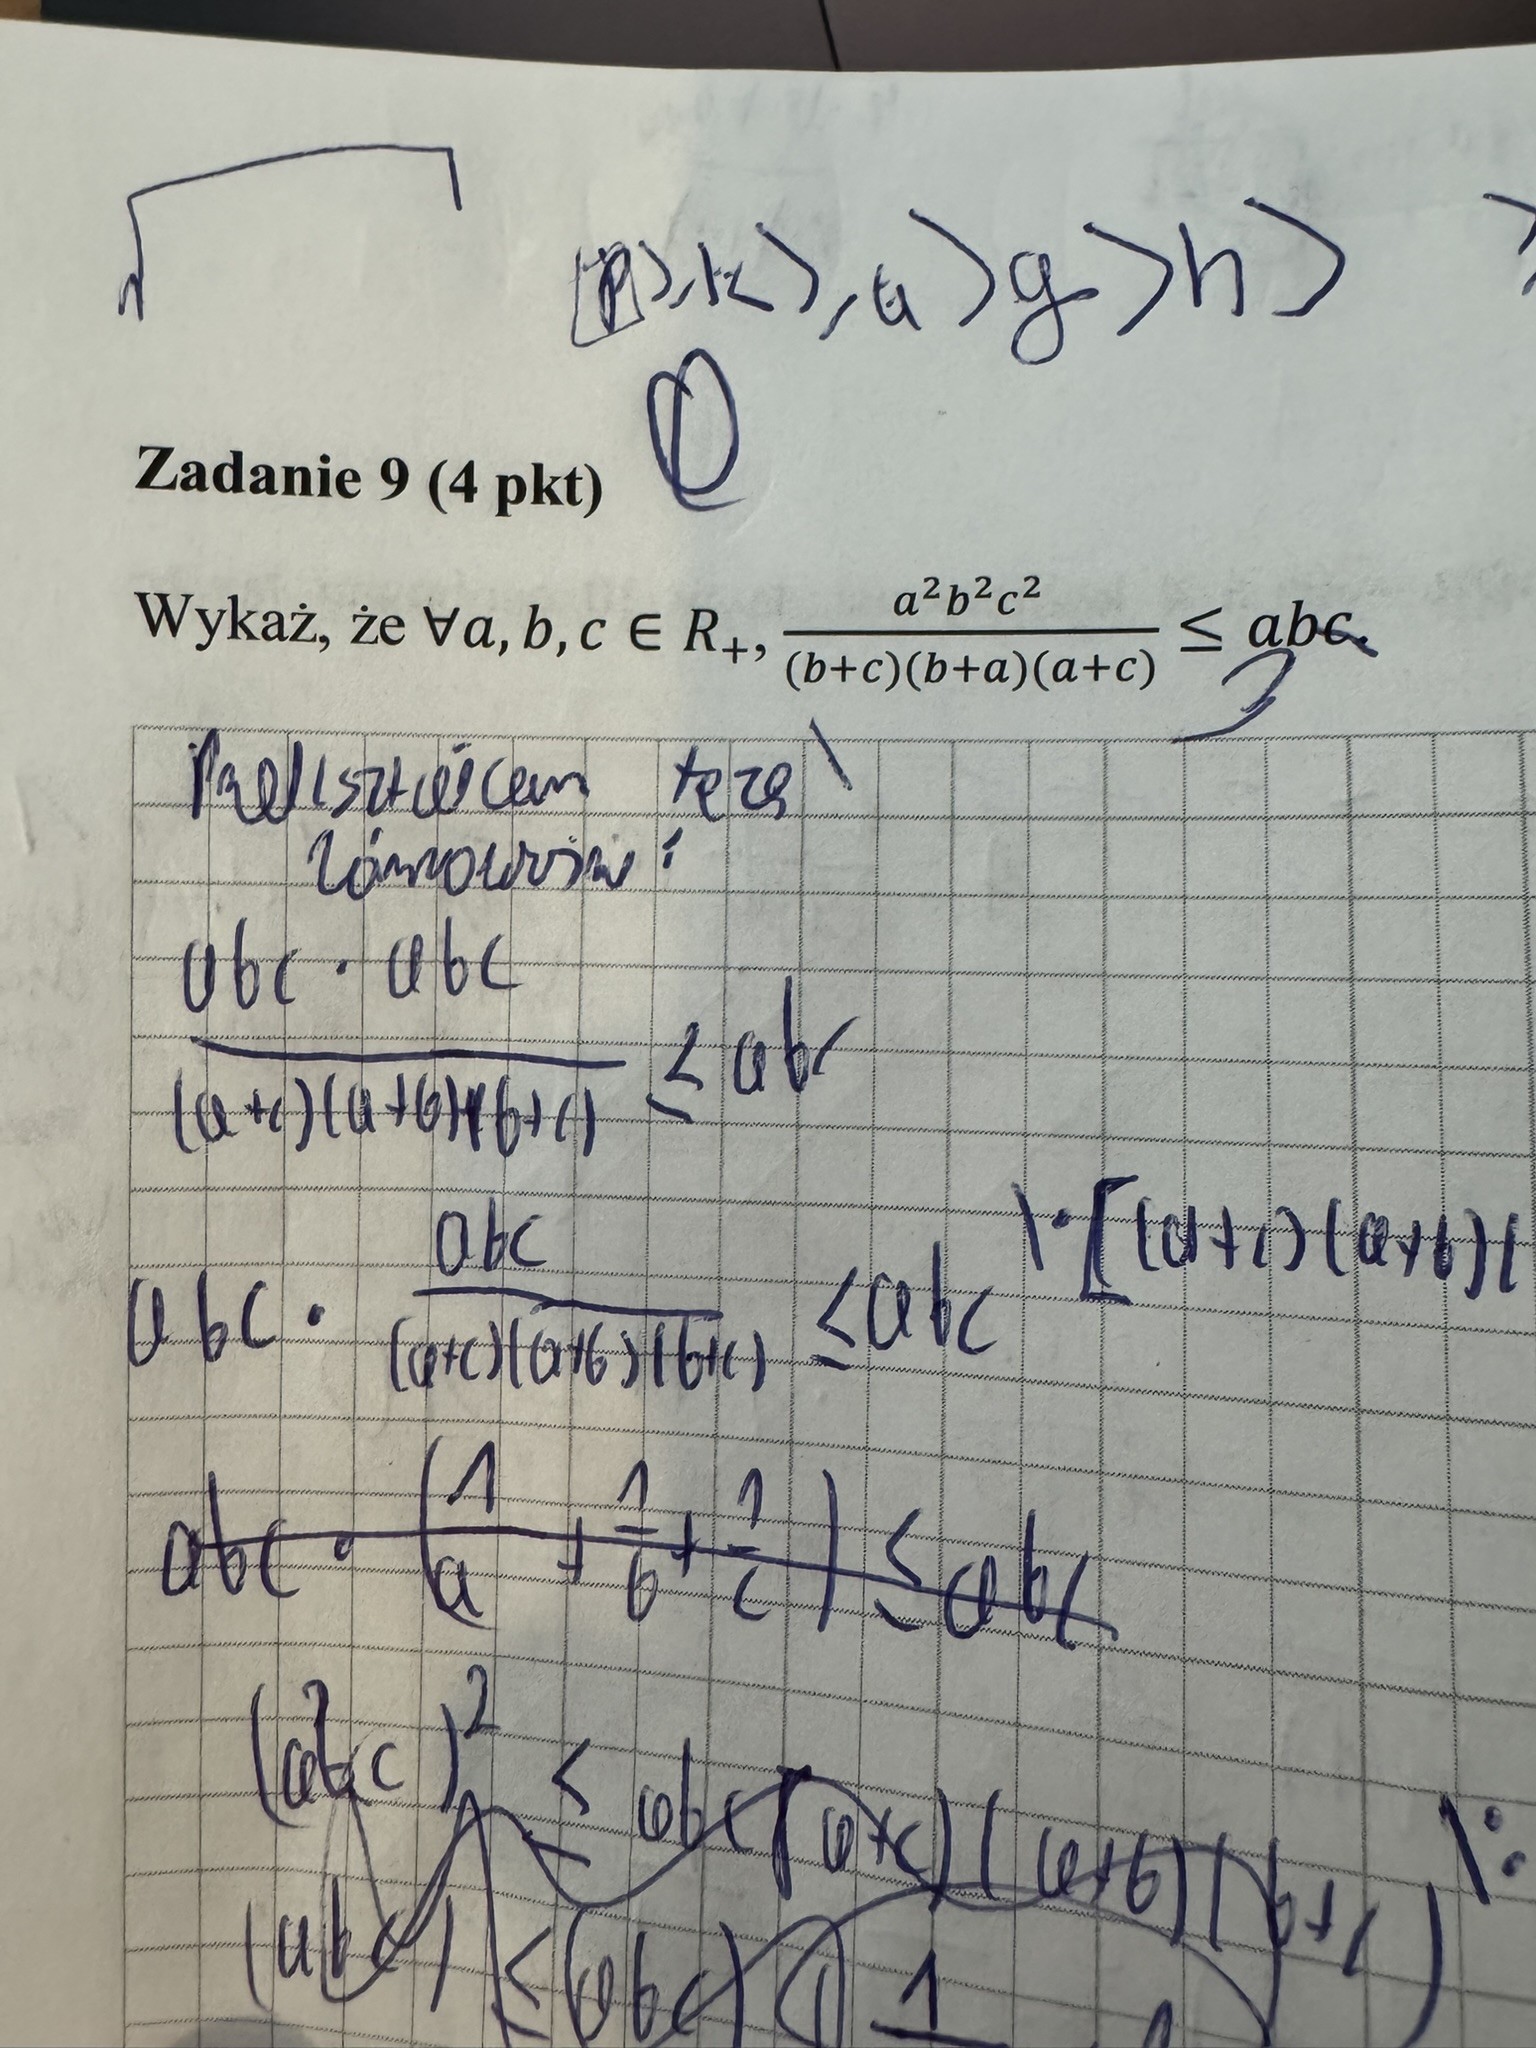 p>,k>,a>g>h>
Zadanie 9 (4 pkt)
Wykaż, że ∀a, b, c ∈ R₊, a²b²c² / (b+c)(b+a)(a+c) ≤ abc.
Przekształcam tezę
równoważnie:
abc · abc / (a+c)(a+b)(b+c) ≤ abc
abc · abc / (a+c)(a+b)(b+c) ≤ abc \·[(a+c)(a+b)(
abc · (1/a + 1/b + 1/c) ≤ abc
(abc)² ≤ abc(a+c)(a+b)(b+c) \:
(abc) ≤ (abc) 1